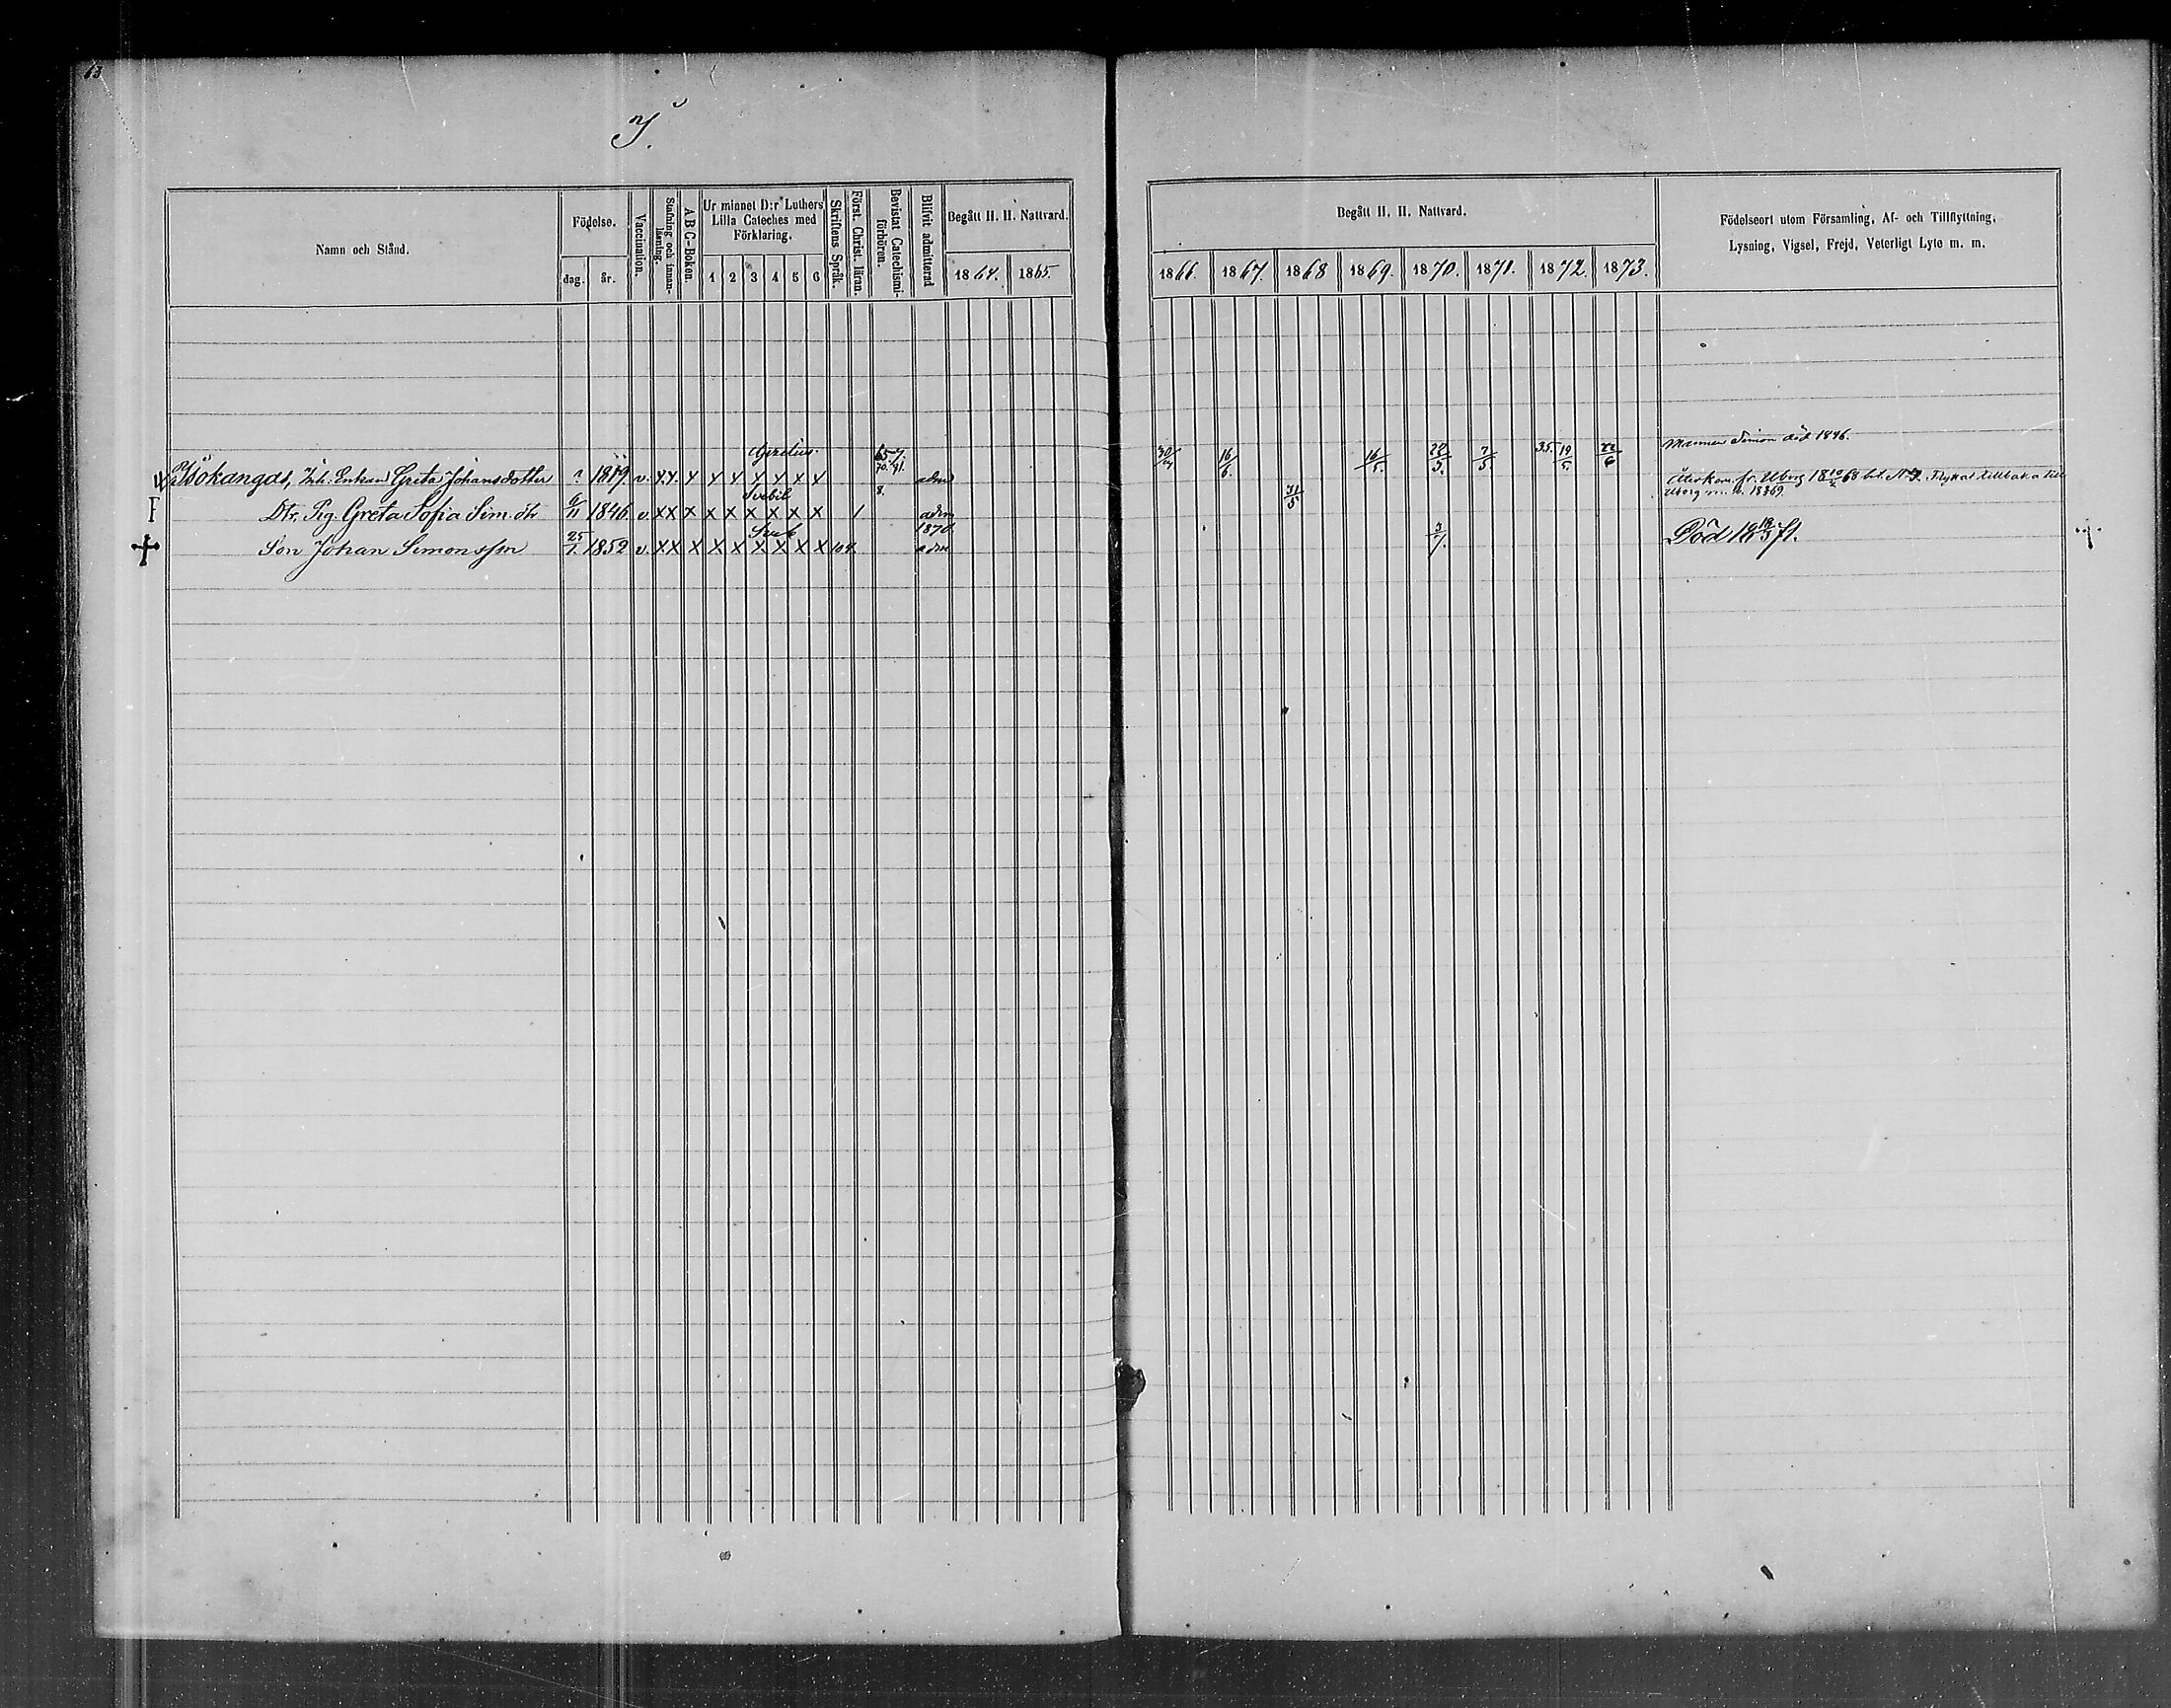 63
Y.
Namn och Stånd.
Födelse.
dag.
år.
Vaccination.
Stafning och innan-läsning.
A B C-Boken.
Ur minnet D:r Luthers
Lilla Cateches med
Förklaring.
1 2 3 4 5 6
Skriftens Språk.
Först. Christ. läran.
Bevistat Catechismi-förhören.
Blifvit admitterad
Begått H. H. Nattvard.
1864. 1865.
Begått H. H. Nattvard.
1866. 1867. 1868 1869. 1870. 1871. 1872. 1873.
Födelseort utom Församling, Af- och Tillflyttning,
Lysning, Vigsel, Frejd, Veterligt Lyte m. m.
657.
70. 71.
30/4 16/6. 16/5. 22/5. 7/5. 19/5. 22/6
Mannen Simon död 1846.
Enkan Greta Johansdotter 1819 v. x x x x x x x x x adm
8.
Svebil
31/5
Återkom. fr. Uborg 18 68 bet. N:o Flyttat tillbaka till
Uborg 1869.
F Dtr. Pig. Greta Sofia Sim. dtr 6/11 1846 v x x x x x x x x x 1 adm
Sveb
1870
Son Johan Simonsson 25/7. 1852 v. x x x x x x x x x 104. adm
3/7.
Död 18 18/5 71.